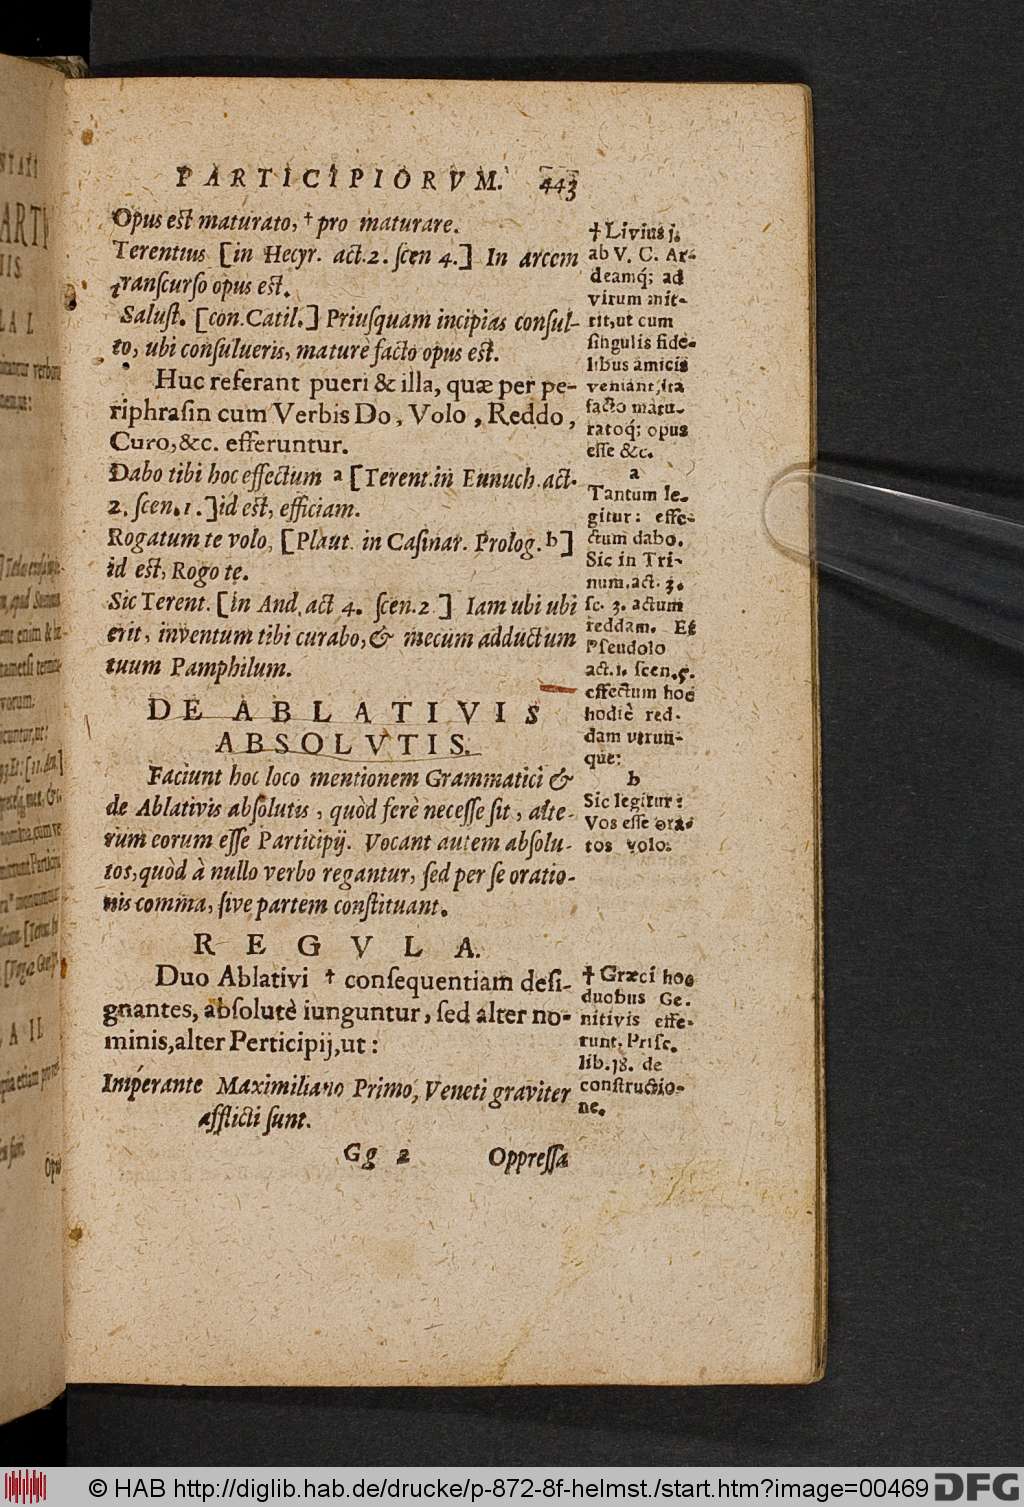 PARTICIPIORVM. 443
Opus est maturato, † pro maturare.
Terentius [in Hecyr. act. 2. scen 4.] In arcem
transcurso opus est.
Salust. [con. Catil.] Priusquam incipias consul-
to, ubi consulueris, maturè facto opus est.
Huc referant pueri & illa, quæ per pe-
riphrasin cum Verbis Do, Volo, Reddo,
Curo, &c. efferuntur.
Dabo tibi hoc effectum a [Terent. in Eunuch. act.
2. scen. 1.] id est, efficiam.
Rogatum te volo, [Plaut. in Casinar. Prolog. b]
id est, Rogo te.
Sic Terent. [in And. act 4. scen. 2.] Iam ubi ubi
erit, inventum tibi curabo, & mecum adductum
tuum Pamphilum.
DE ABLATIVIS
ABSOLVTIS.
Faciunt hoc loco mentionem Grammatici &
de Ablativis absolutis, quòd ferè necesse sit, alte-
rum eorum esse Participij. Vocant autem absolu-
tos, quòd à nullo verbo regantur, sed per se oratio-
nis comma, sive partem constituant.
REGVLA.
Duo Ablativi † consequentiam desi-
gnantes, absolutè iunguntur, sed alter no-
minis, alter Perticipij, ut:
Imperante Maximiliano Primo, Veneti graviter
afflicti sunt.
Gg 2 Oppressa
† Livius j.
ab V. C. Ar-
deamq; ad
virum mit-
tit, ut cum
singulis fide-
libus amicis
veniant, ita
facto matu-
ratoq; opus
esse &c.
a
Tantum le-
gitur: effe-
ctum dabo.
Sic in Tri-
num. act. 3.
sc. 3. actum
reddam. Et
Pseudolo
act. 1. scen. 5.
effectum hoc
hodiè red-
dam utrun-
que:
b
Sic legitur:
Vos esse ora-
tos volo.
† Græci hoc
duobus Ge-
nitivis effe-
runt. Prisc.
lib. 18. de
constructio-
ne.
© HAB http://diglib.hab.de/drucke/p-872-8f-helmst./start.htm?image=00469 DFG